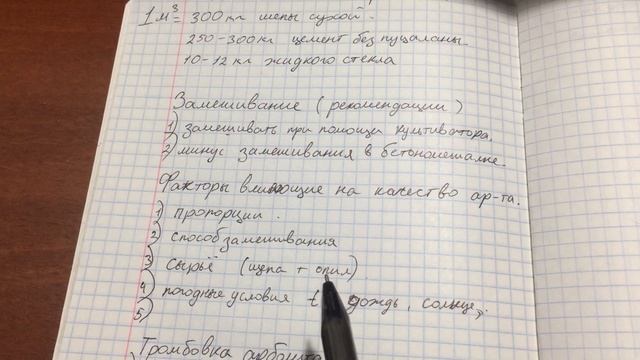 1 м³ = 300 кг щепы сухой.
250-300 кг цемент без пуцаланы.
10-12 кг жидкого стекла
Замешивание (рекомендации)
1) замешивать при помощи культиватора.
2) минус замешивания в бетономешалке.
Факторы влияющие на качество ар-та.
1) пропорции.
2) способ замешивания
3) сырьё (щепа + опил)
4) погодные условия t дождь, солнце,
5)
Тромбовка арболита